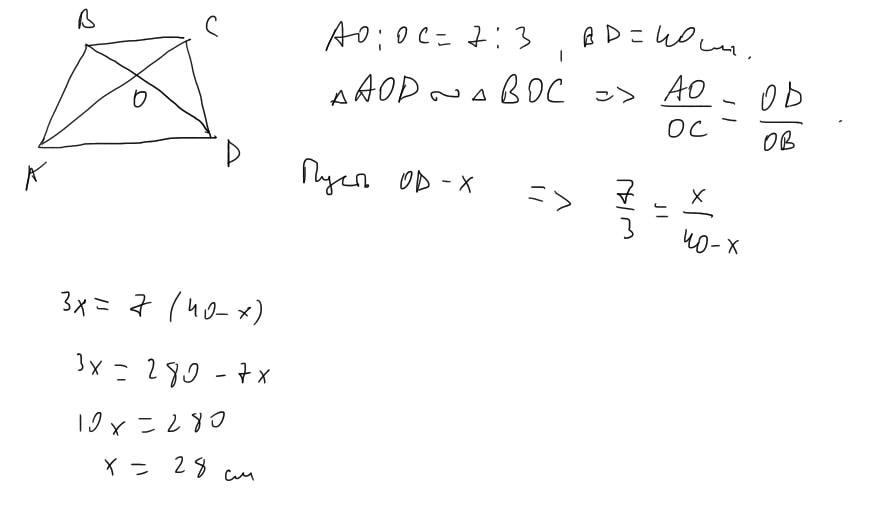 B C
O
A D
AO : OC = 7 : 3 , BD = 40 см.
△AOD ~ △BOC => AO/OC = OD/OB .
Пусть OD - x => 7/3 = x/(40-x)
3x = 7 (40-x)
3x = 280 - 7x
10x = 280
x = 28 см